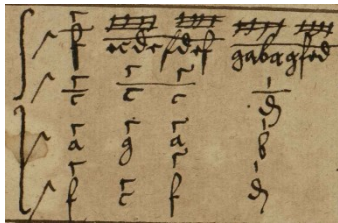 f ecdefdef gabagfed
c c c d
a g a b
f c f d